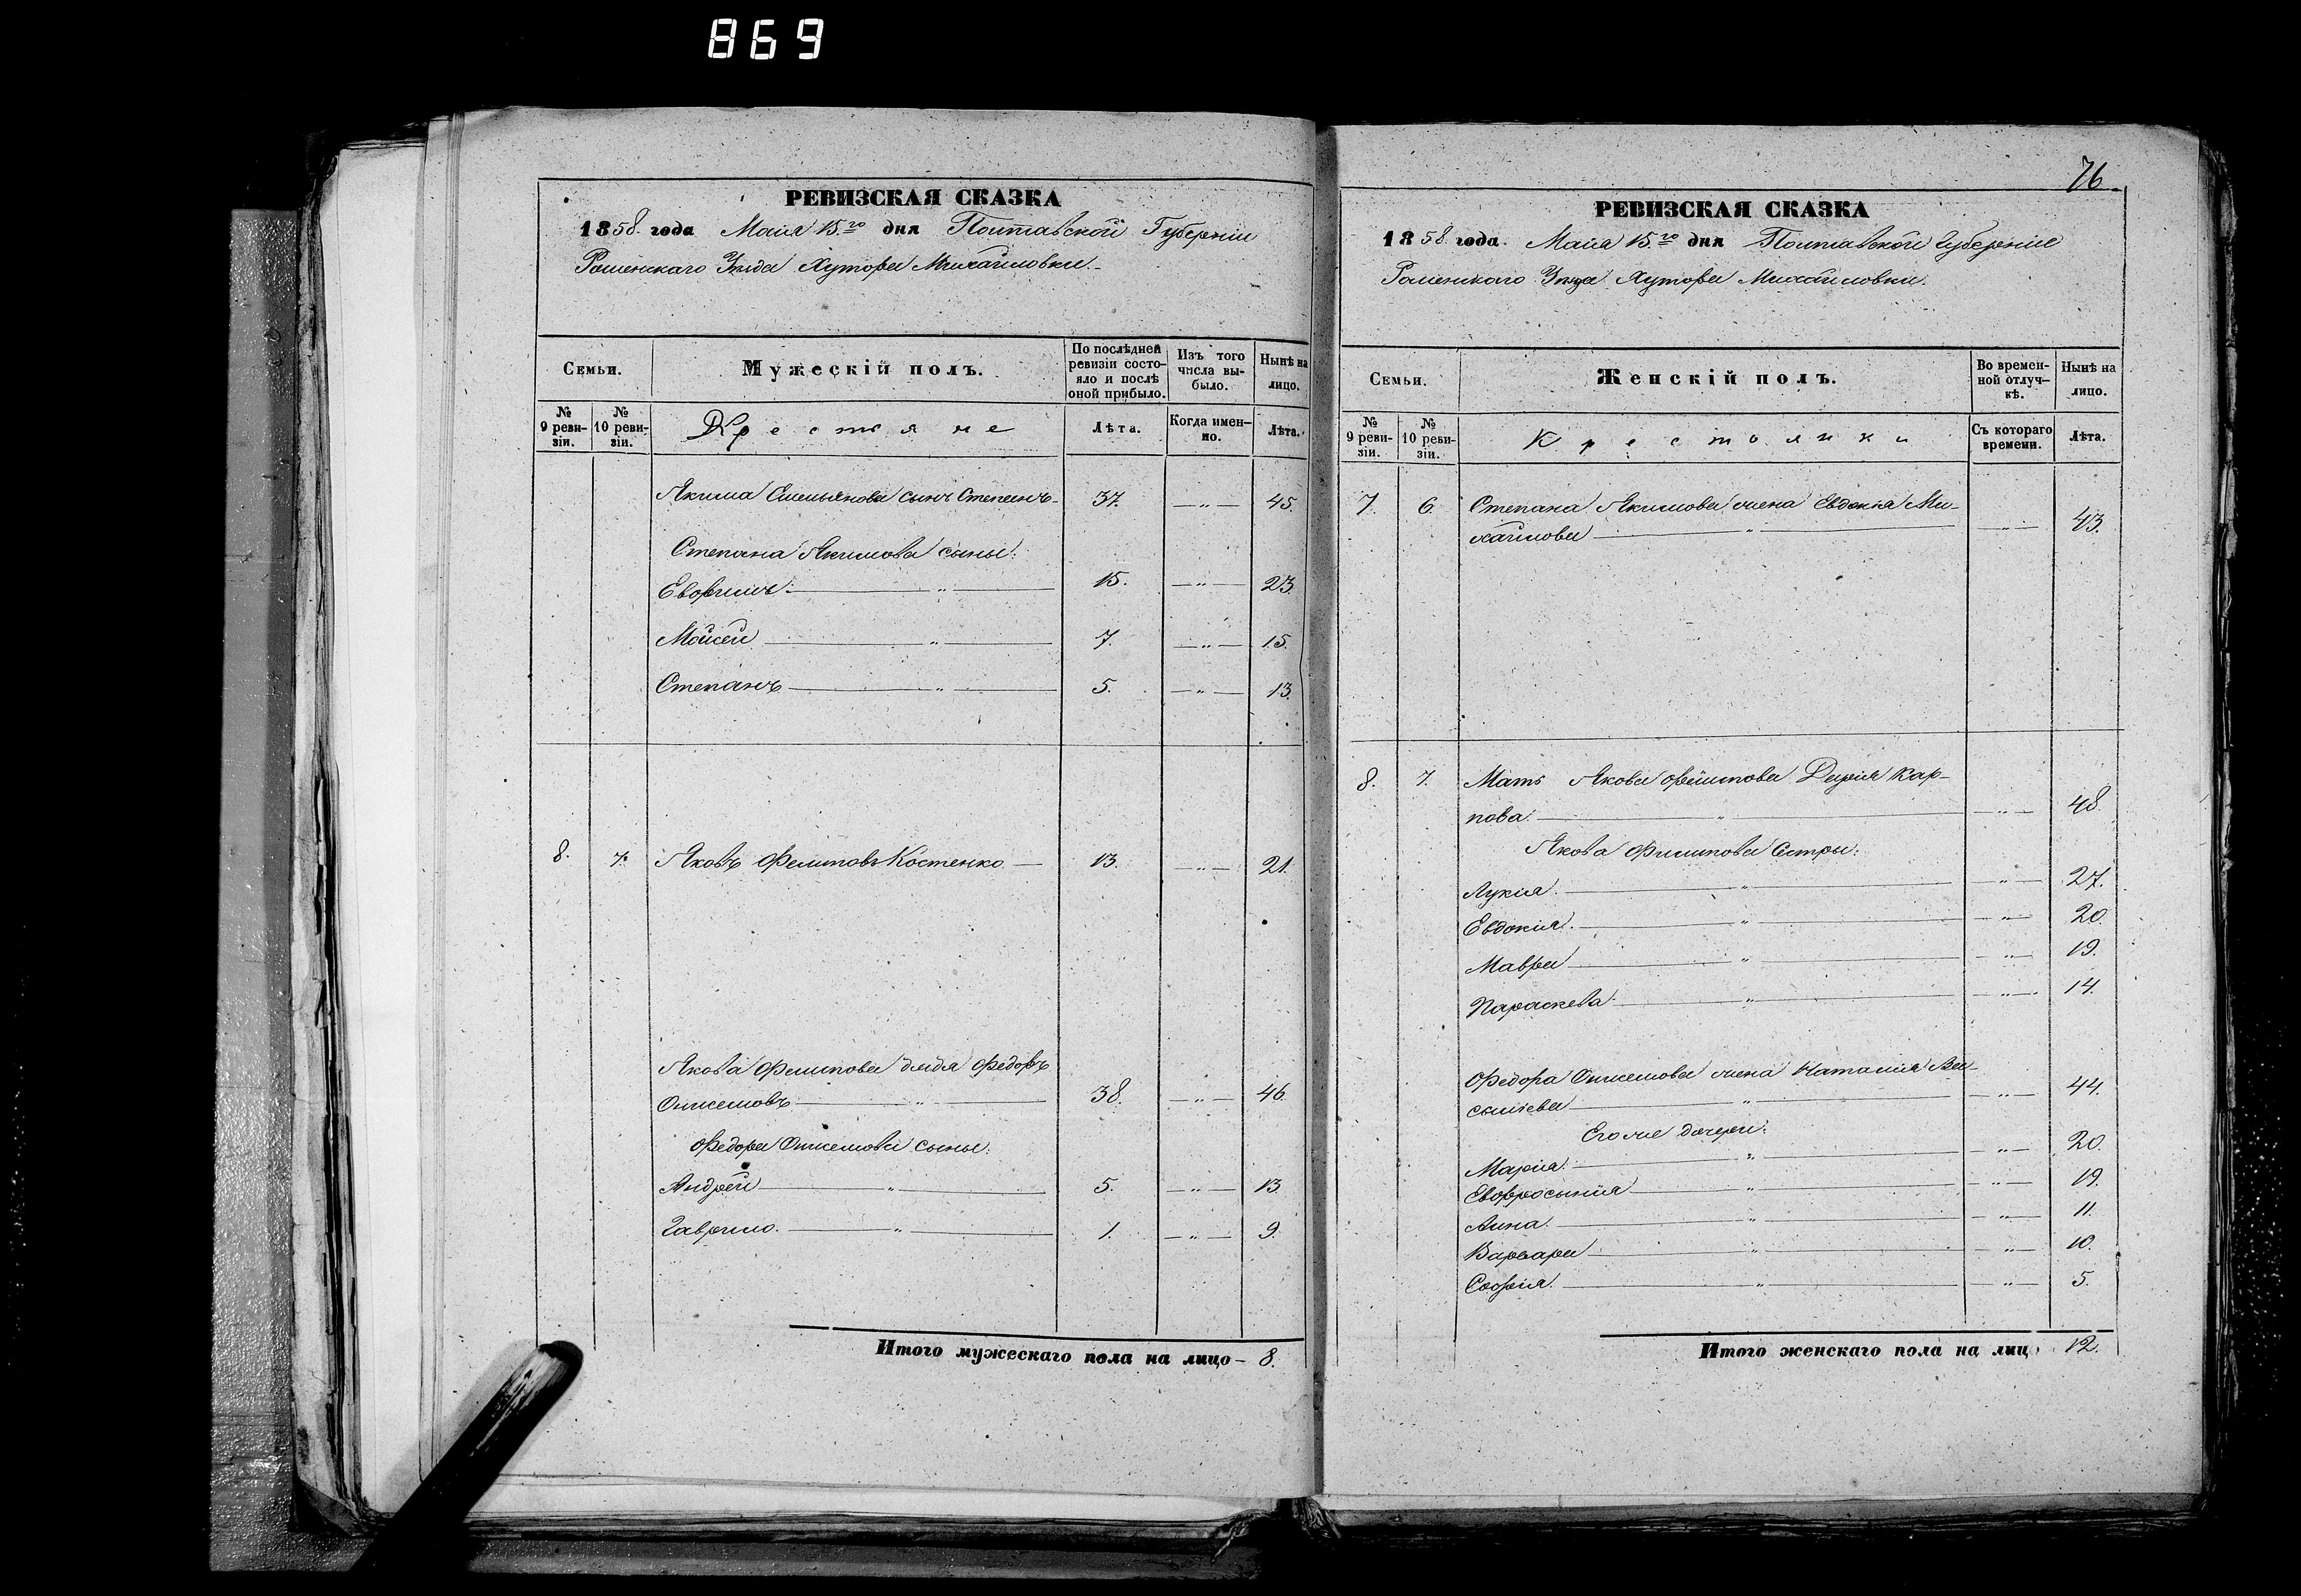 869
РЕВИЗСКАЯ СКАЗКА
1858. года Мая 15.го дня Полтавской Губерніи
Роменскаго Уѣзда Хутора Михайловки.
Семьи.
Мужескій полъ.
По послѣдней ревизіи состояло и послѣ оной прибыло.
Изъ того числа выбыло.
Нынѣ на лицо.
№ 9 ревизіи.
№ 10 ревизіи.
Крестьяне
Лѣта.
Когда именно.
Лѣта.
Якима Емельянова сынъ Степанъ 37. —„— 45.
Степана Якимова сыны:
Евфимъ — „ — 15. —„— 23.
Мойсей — „ — 7. —„— 15.
Степанъ — „ — 5. —„— 13.
8. 7. Яковъ Филиповъ Костенко — 13. —„— 21.
Якова Филипова дядя Федоръ
Онисимовъ — „ — 38. —„— 46.
Федора Онисимова сыны:
Андрей — „ — 5. —„— 13
Гаврило. — „ — 1. —„— 9.
Итого мужескаго пола на лицо – 8.
76
РЕВИЗСКАЯ СКАЗКА
1858 года. Мая 15.го дня Полтавской Губерніи
Роменскаго Уѣзда Хутора Михайловки.
Семьи.
Женскій полъ.
Во временной отлучкѣ.
Нынѣ на лицо.
№ 9 ревизіи.
№ 10 ревизіи.
Крестьянки
Съ котораго времени.
Лѣта.
7. 6. Степана Якимова жена Евдокія Ми-
хайлова — „ — —„— 43.
8. 7. Мать Якова Филипова Дарія Кар-
пова. — „ — —„— 48.
Якова Филипова Сестры:
Лукія. — „ — —„— 27.
Евдокія. — „ — —„— 20.
Мавра — „ — —„— 19.
Параскева — „ — —„— 14.
Федора Онисимова жена Наталія Ва-
сильева — „ — —„— 44.
Его же дочери:
Марія. — „ — —„— 20.
Евфросинія — „ — —„— 19.
Анна. — „ — —„— 11.
Варвара — „ — —„— 10.
Софія. — „ — —„— 5.
Итого женскаго пола на лиц 12.